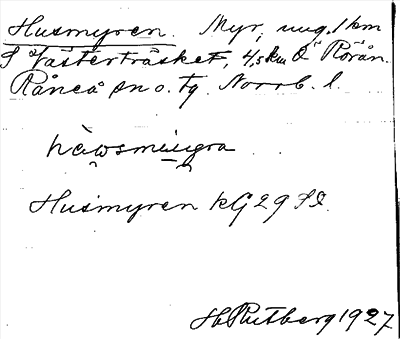 Husmyren. Myr, ung. 1 km
S Västerträsket, 4,5 km Ö Rörån.
Råneå sn o. tg. Norrb. l.
hàwsmyıŋra
Husmyren kG 29 SO.
Hb Rutberg 1927